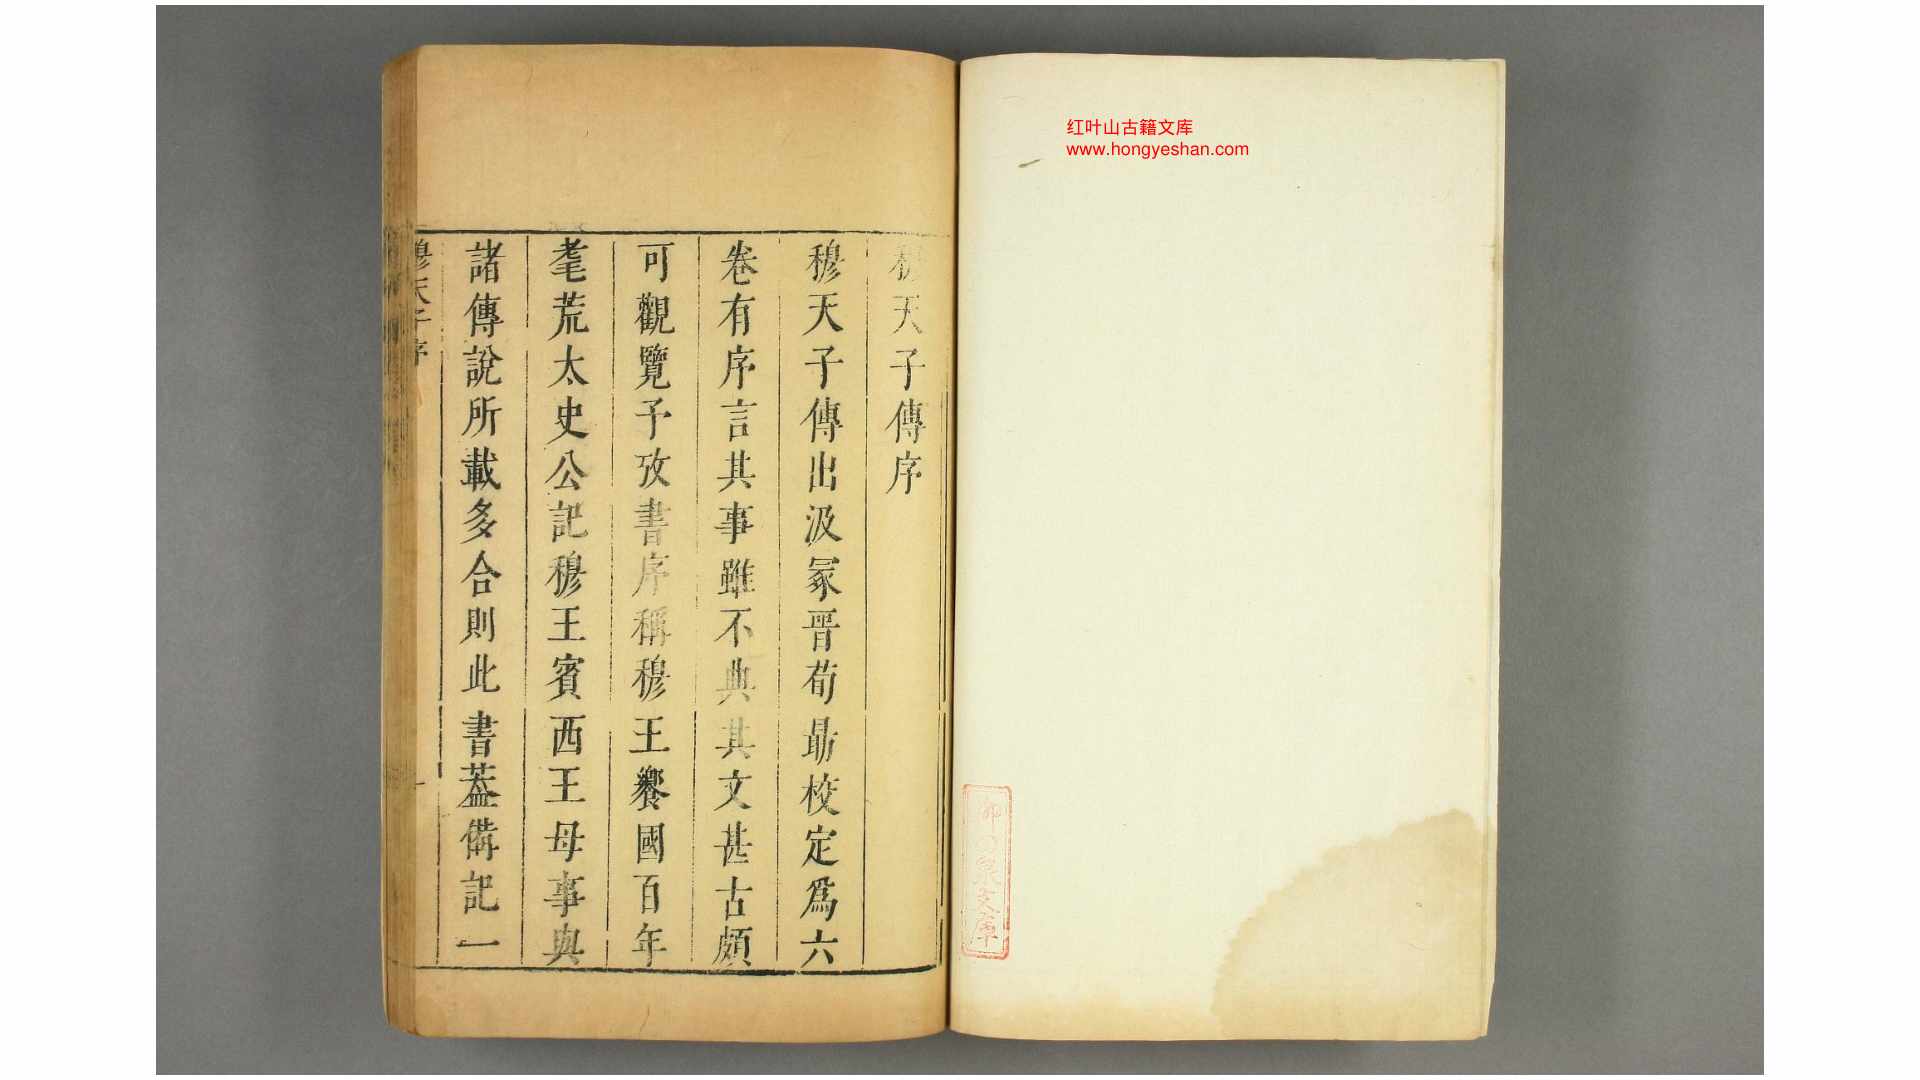 红叶山古籍文库
www.hongyeshan.com
穆天子傳序
穆天子傳出汲冢晉荀勗校定爲六
卷有序言其事雖不典其文甚古頗
可觀覽予攷書序稱穆王饗國百年
耄荒太史公記穆王賓西王母事與
諸傳說所載多合則此書葢備記一
穆天子序